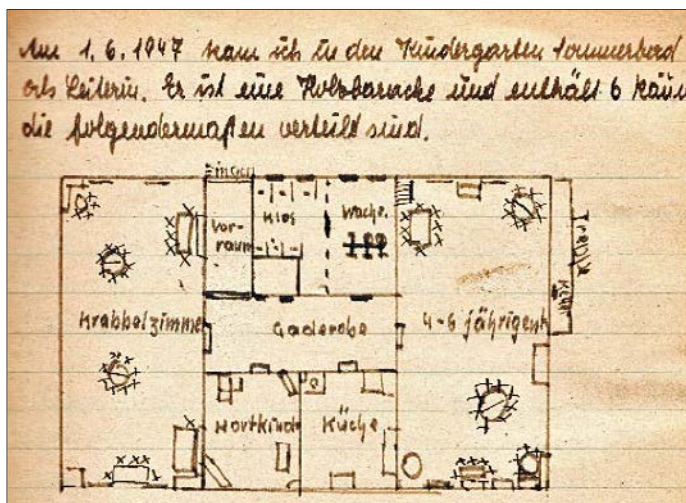 Am 1. 6. 1947 kam ich in den Kindergarten Sommerbad
als Leiterin. Er ist eine Holzbaracke und enthält 6 Räum
die folgendermaßen verteilt sind.
Eingang
Vor-
raum
Klos
Wachr.
Krabbelzimme
Gaderobe
4-6 jährigen
Hortkind
Küche